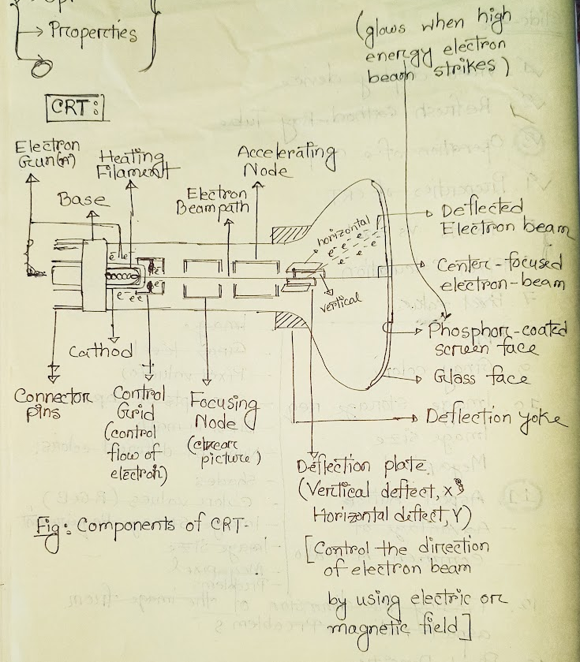 → Properties
(glows when high
energy electron
beam strikes)
CRT:
Electron
Gun(n)
Heating
Filament
Accelerating
Node
Base
Electron
Beampath
horizontal
e⁻ e⁻ e⁻ e⁻
e⁻ e⁻ e⁻
vertical
Deflected
Electron beam
Center-focused
electron-beam
Phosphor-coated
screen face
Glass face
Deflection yoke
Cathod
Connector
pins
Control
Grid
(control
flow of
electron)
Focusing
Node
(clear
picture)
Deflection plate
(Vertical deflect, X &
Horizontal deflect, Y)
[Control the direction
of electron beam
by using electric or
magnetic field]
Fig: Components of CRT.